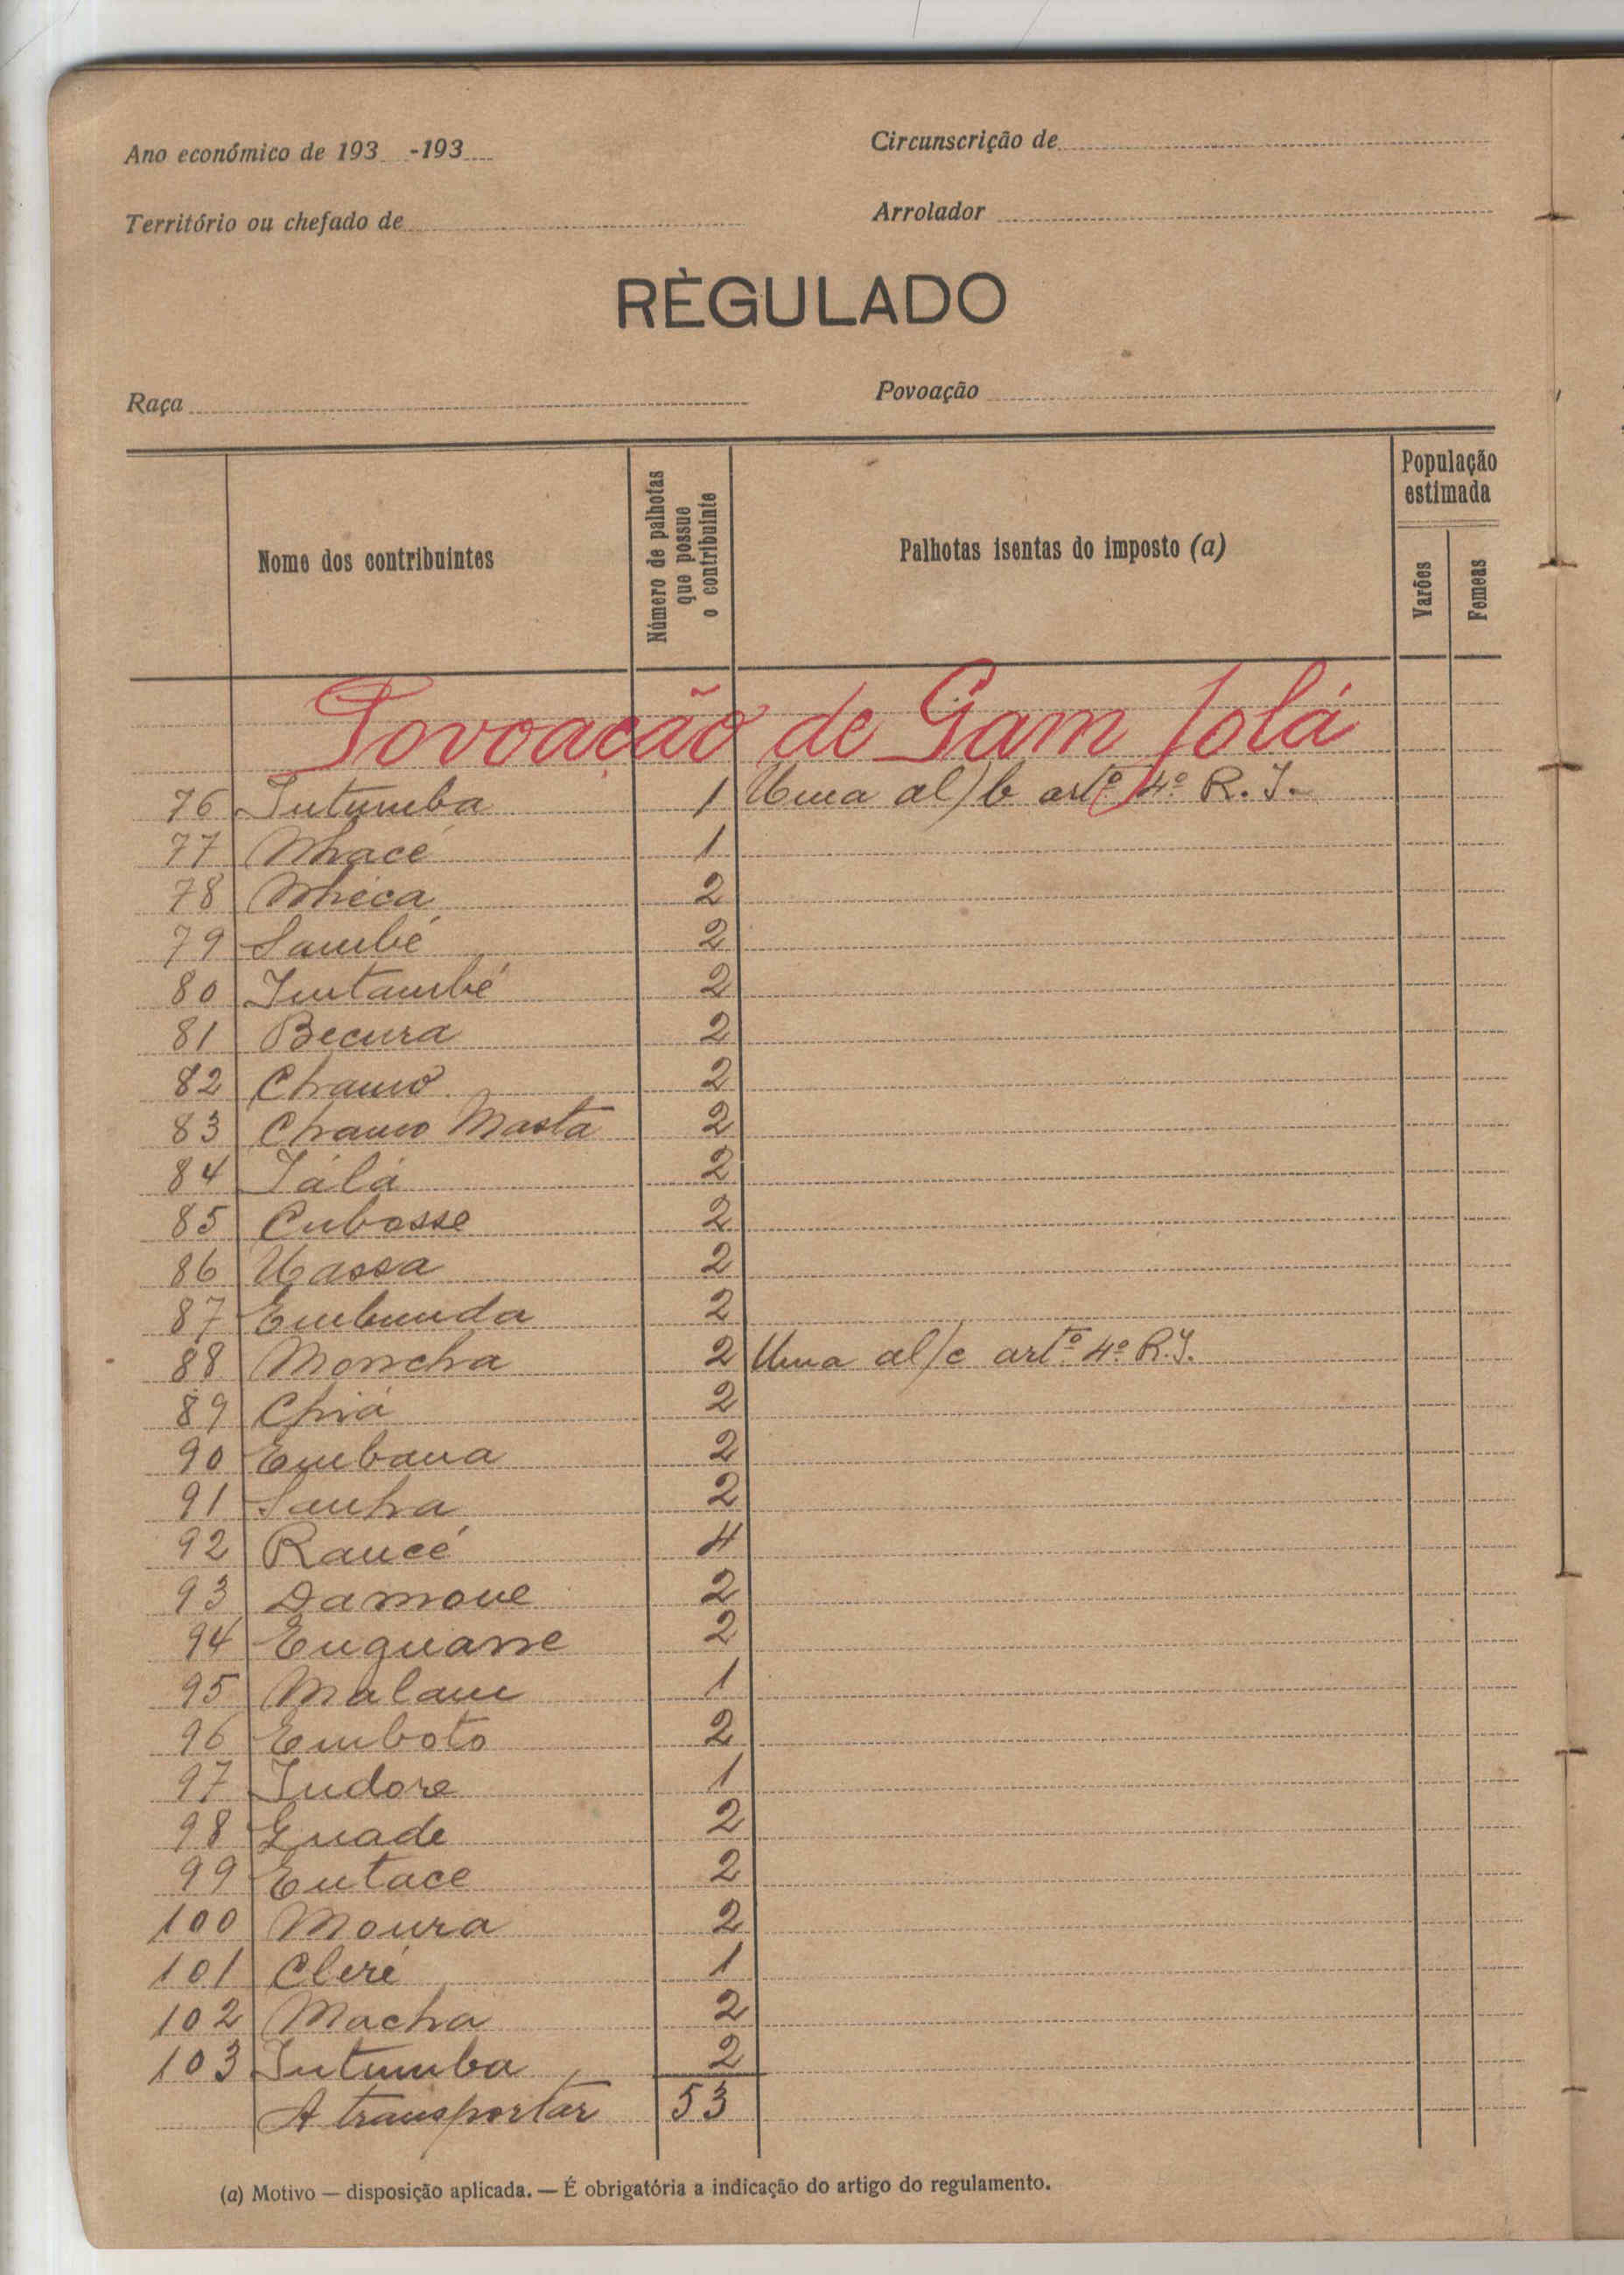 Ano económico de 193 -193
Circunscrição de
Território ou chefado de
Arrolador
RÈGULADO
Raça
Povoação
Nome dos contribuintes
Número de palhotas que possue o contribuinte
Palhotas isentas do imposto (a)
População estimada
Varões
Femeas
Povoação de Gam Jolá
76 Intumba 1 Uma al) b artº 4º R. I.
77 Nhacé 1
78 Nhéca 2
79 Sambé 2
80 Intambé 2
81 Becura 2
82 Chamo 2
83 Chamo Masta 2
84 Iálá 2
85 Cubosse 2
86 Uassa 2
87 Embunda 2
88 Moncha 2 Uma al/c artº 4º R.I.
89 Chiá 2
90 Embana 2
91 Sanha 2
92 Rancé 4
93 Damone 2
94 Enguane 2
95 Malam 1
96 Emboto 2
97 Indore 1
98 Guade 2
99 Entace 2
100 Moura 2
101 Cleré 1
102 Macha 2
103 Intumba 2
A transportar 53
(a) Motivo — disposição aplicada. — É obrigatória a indicação do artigo do regulamento.